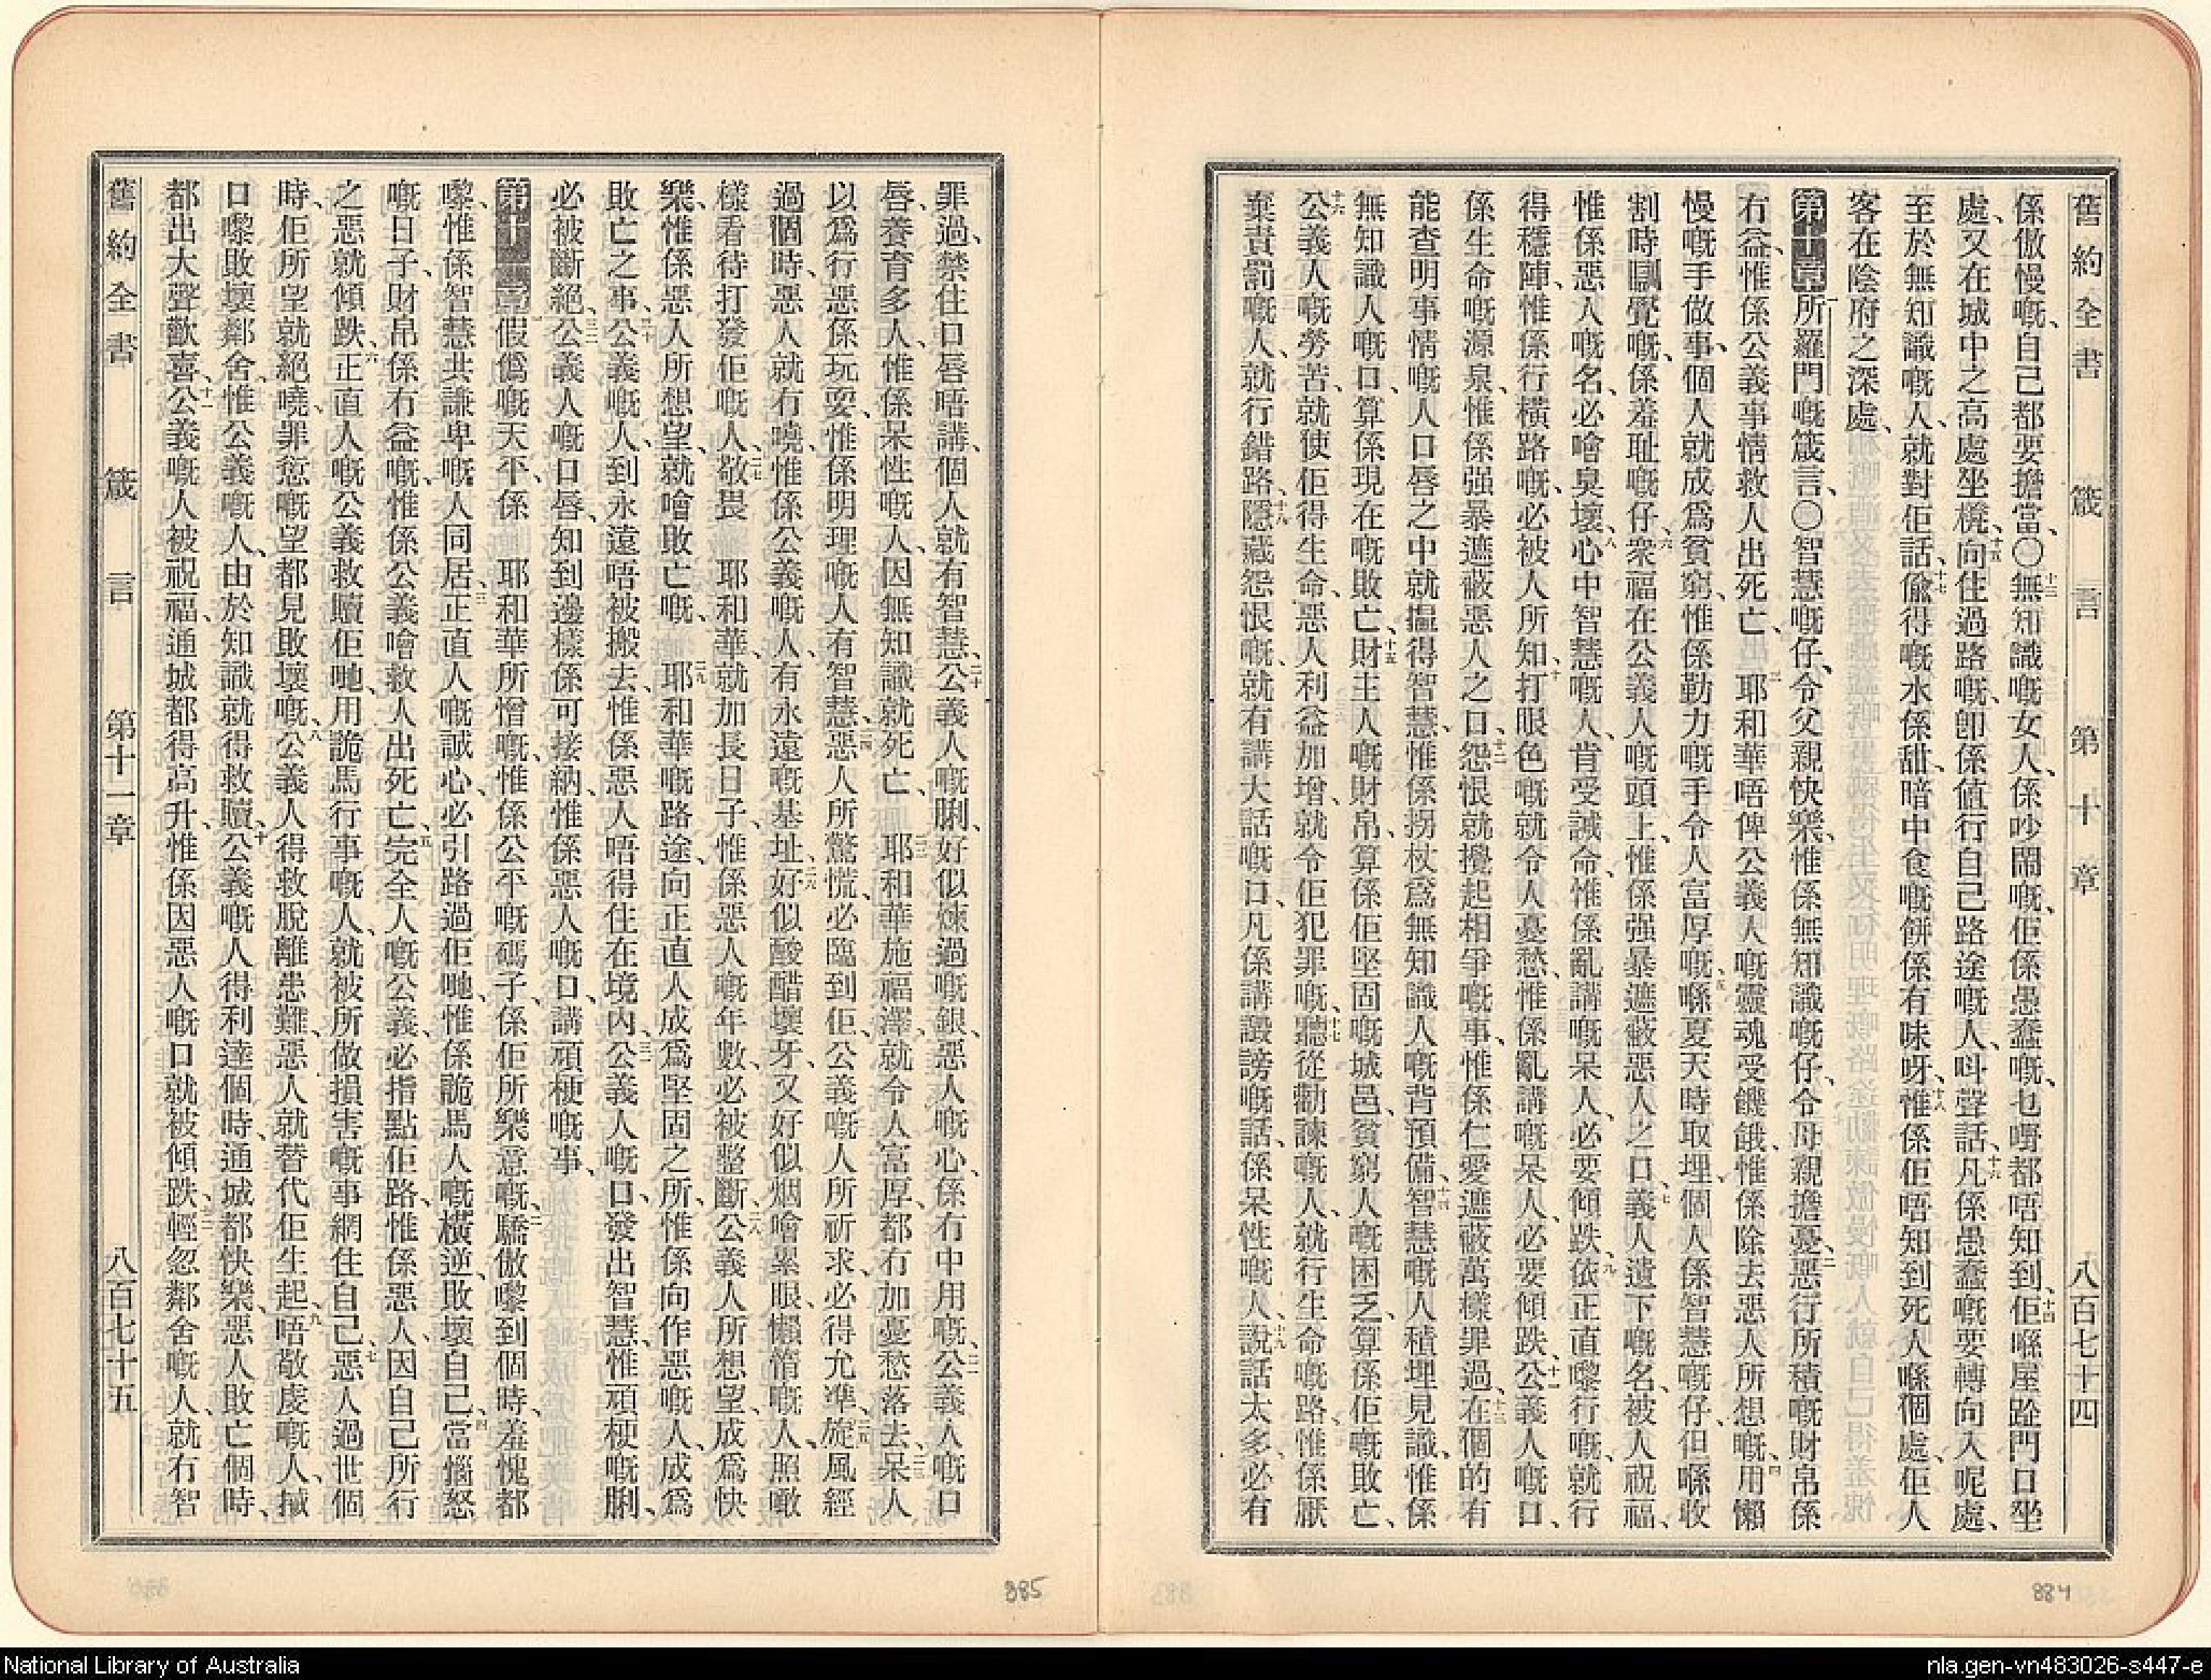 舊約全書 箴言 第十章 八百七十四
係傲慢嘅、自己都要擔當、〇十三無知識嘅女人、係吵鬧嘅、佢係愚蠢嘅、乜嘢都唔知到、十四佢喺屋跧門口坐
處、又在城中之高處坐櫈、十五向住過路嘅、卽係値行自己路途嘅人、呌聲話、十六凡係愚蠢嘅、要轉向入呢處、
至於無知識嘅人、就對佢話、十七偸得嘅水係甜、暗中食嘅餅係有味呀、十八惟係佢唔知到死人喺個處、佢人
客在陰府之深處、
第十章一所羅門嘅箴言、〇智慧嘅仔、令父親快樂、惟係無知識嘅仔、令母親擔憂、二惡行所積嘅財帛係
冇益、惟係公義事情救人出死亡、三耶和華唔俾公義人嘅靈魂受饑餓、惟係除去惡人所想嘅、四用懶
慢嘅手做事、個人就成爲貧窮、惟係勤力嘅手令人富厚嘅、五喺夏天時取埋、個人係智慧嘅仔、但喺收
割時瞓覺嘅、係羞耻嘅仔、六衆福在公義人嘅頭上、惟係强暴遮蔽惡人之口、七義人遺下嘅名、被人祝福、
惟係惡人嘅名、必噲臭壞、八心中智慧嘅人、肯受誠命、惟係亂講嘅呆人、必要傾跌、九依正直嚟行嘅、就行
得穩陣、惟係行橫路嘅、必被人所知、十打眼色嘅就令人憂愁、惟係亂講嘅呆人、必要傾跌、十一公義人嘅口、
係生命嘅源泉、惟係强暴遮蔽惡人之口、十二怨恨就攪起相爭嘅事、惟係仁愛遮蔽萬樣罪過、十三在個的有
能查明事情嘅人口唇之中、就揾得智慧、惟係拐杖爲無知識人嘅背預備、十四智慧嘅人積埋見識、惟係
無知識人嘅口、算係現在嘅敗亡、十五財主人嘅財帛、算係佢堅固嘅城邑、貧窮人嘅困乏、算係佢嘅敗亡、
十六公義人嘅勞苦、就使佢得生命、惡人利益加增、就令佢犯罪嘅、十七聽從勸諫嘅人、就行生命嘅路、惟係厭
棄責罰嘅人、就行錯路、十八隱藏怨恨嘅、就有講大話嘅口、凡係講譭謗嘅話、係呆性嘅人、十九說話太多、必有
罪過、禁住口唇唔講、個人就有智慧、二十公義人嘅脷、好似煉過嘅銀、惡人嘅心、係冇中用嘅、二一公義人嘅口
唇、養育多人、惟係呆性嘅人、因無知識就死亡、二二耶和華施福澤、就令人富厚、都冇加憂愁落去、二三呆人
以爲行惡係玩耍、惟係明理嘅人有智慧、二四惡人所驚慌、必臨到佢、公義嘅人所祈求、必得允準、二五旋風經
過個時、惡人就冇嘵、惟係公義嘅人、有永遠嘅基址、二六好似酸醋壞牙、又好似烟噲累眼、懶惰嘅人、照噉
樣看待打發佢嘅人、二七敬畏 耶和華、就加長日子、惟係惡人嘅年數、必被整斷、二八公義人所想望、成爲快
樂、惟係惡人所想望、就噲敗亡嘅、二九耶和華嘅路途、向正直人成爲堅固之所、惟係向作惡嘅人、成爲
敗亡之事、三十公義嘅人、到永遠唔被搬去、惟係惡人唔得住在境內、三一公義人嘅口、發出智慧、惟頑梗嘅脷、
必被斷絕、三二公義人嘅口唇、知到邊樣係可接納、惟係惡人嘅口、講頑梗嘅事、
第十一章一假僞嘅天平、係 耶和華所憎嘅、惟係公平嘅碼子、係佢所樂意嘅、二驕傲嚟到個時、羞愧都
嚟、惟係智慧共謙卑嘅人同居、三正直人嘅誠心、必引路過佢哋、惟係詭馬人嘅橫逆、敗壞自己、四當惱怒
嘅日子、財帛係冇益嘅、惟係公義噲救人出死亡、五完全人嘅公義、必指點佢路、惟係惡人、因自己所行
之惡就傾跌、六正直人嘅公義、救贖佢哋、用詭馬行事嘅人、就被所做損害嘅事網住自己、七惡人過世個
時、佢所望就絕嘵、罪愆嘅望都見敗壞嘅、八公義人得救脫離患難、惡人就替代佢生起、九唔敬虔嘅人、搣
口嚟敗壞鄰舍、惟公義嘅人、由於知識就得救贖、十公義嘅人得利達個時、通城都快樂、惡人敗亡個時、
都出大聲歡喜、十一公義嘅人被祝福、通城都得高升、惟係因惡人嘅口就被傾跌、十二輕忽鄰舍嘅人、就冇智
舊約全書 箴言 第十一章 八百七十五
885
884
National Library of Australia
nla.gen-vn483026-s447-e